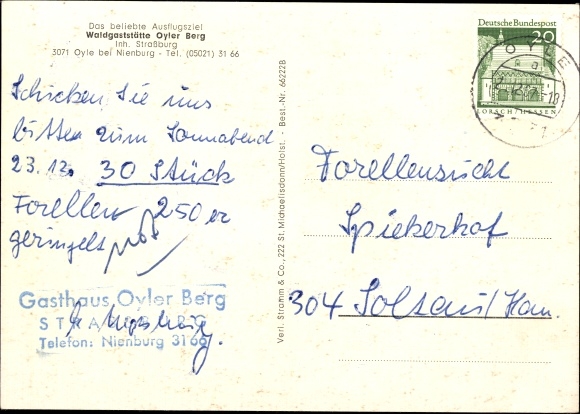 Das beliebte Ausflugsziel
Waldgaststätte Oyler Berg
Inh. Straßburg
3071 Oyle bei Nienburg - Tel. (05021) 31 66
Schicken Sie uns
bitte zum Sonnabend
23.12. 30 Stück
Forellen 250 er
geringelt
Gasthaus Oyler Berg
STRASSBURG
Telefon: Nienburg 3166
Verl. Stramm & Co., 222 St. Michaelisdonn/Holst. Best.-Nr. 66222B
Deutsche Bundespost
20
LORSCH/HESSEN
OYLE
Forellenzucht
Spiekerhof
304 Soltau/Han.